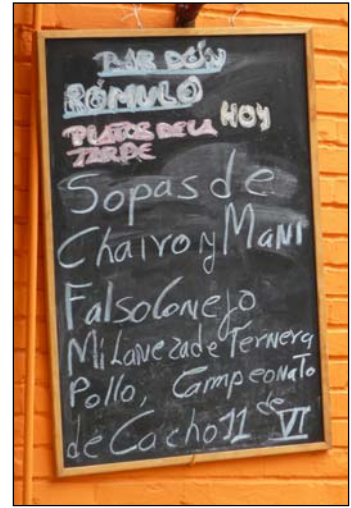 BAR DON
RÓMULO
HOY
PLATOS DE LA
TARDE
Sopas de
Chairo y Mani
Falso Conejo
Milaneza de Ternera
Pollo, Campeonato
de Cacho 11 de VI